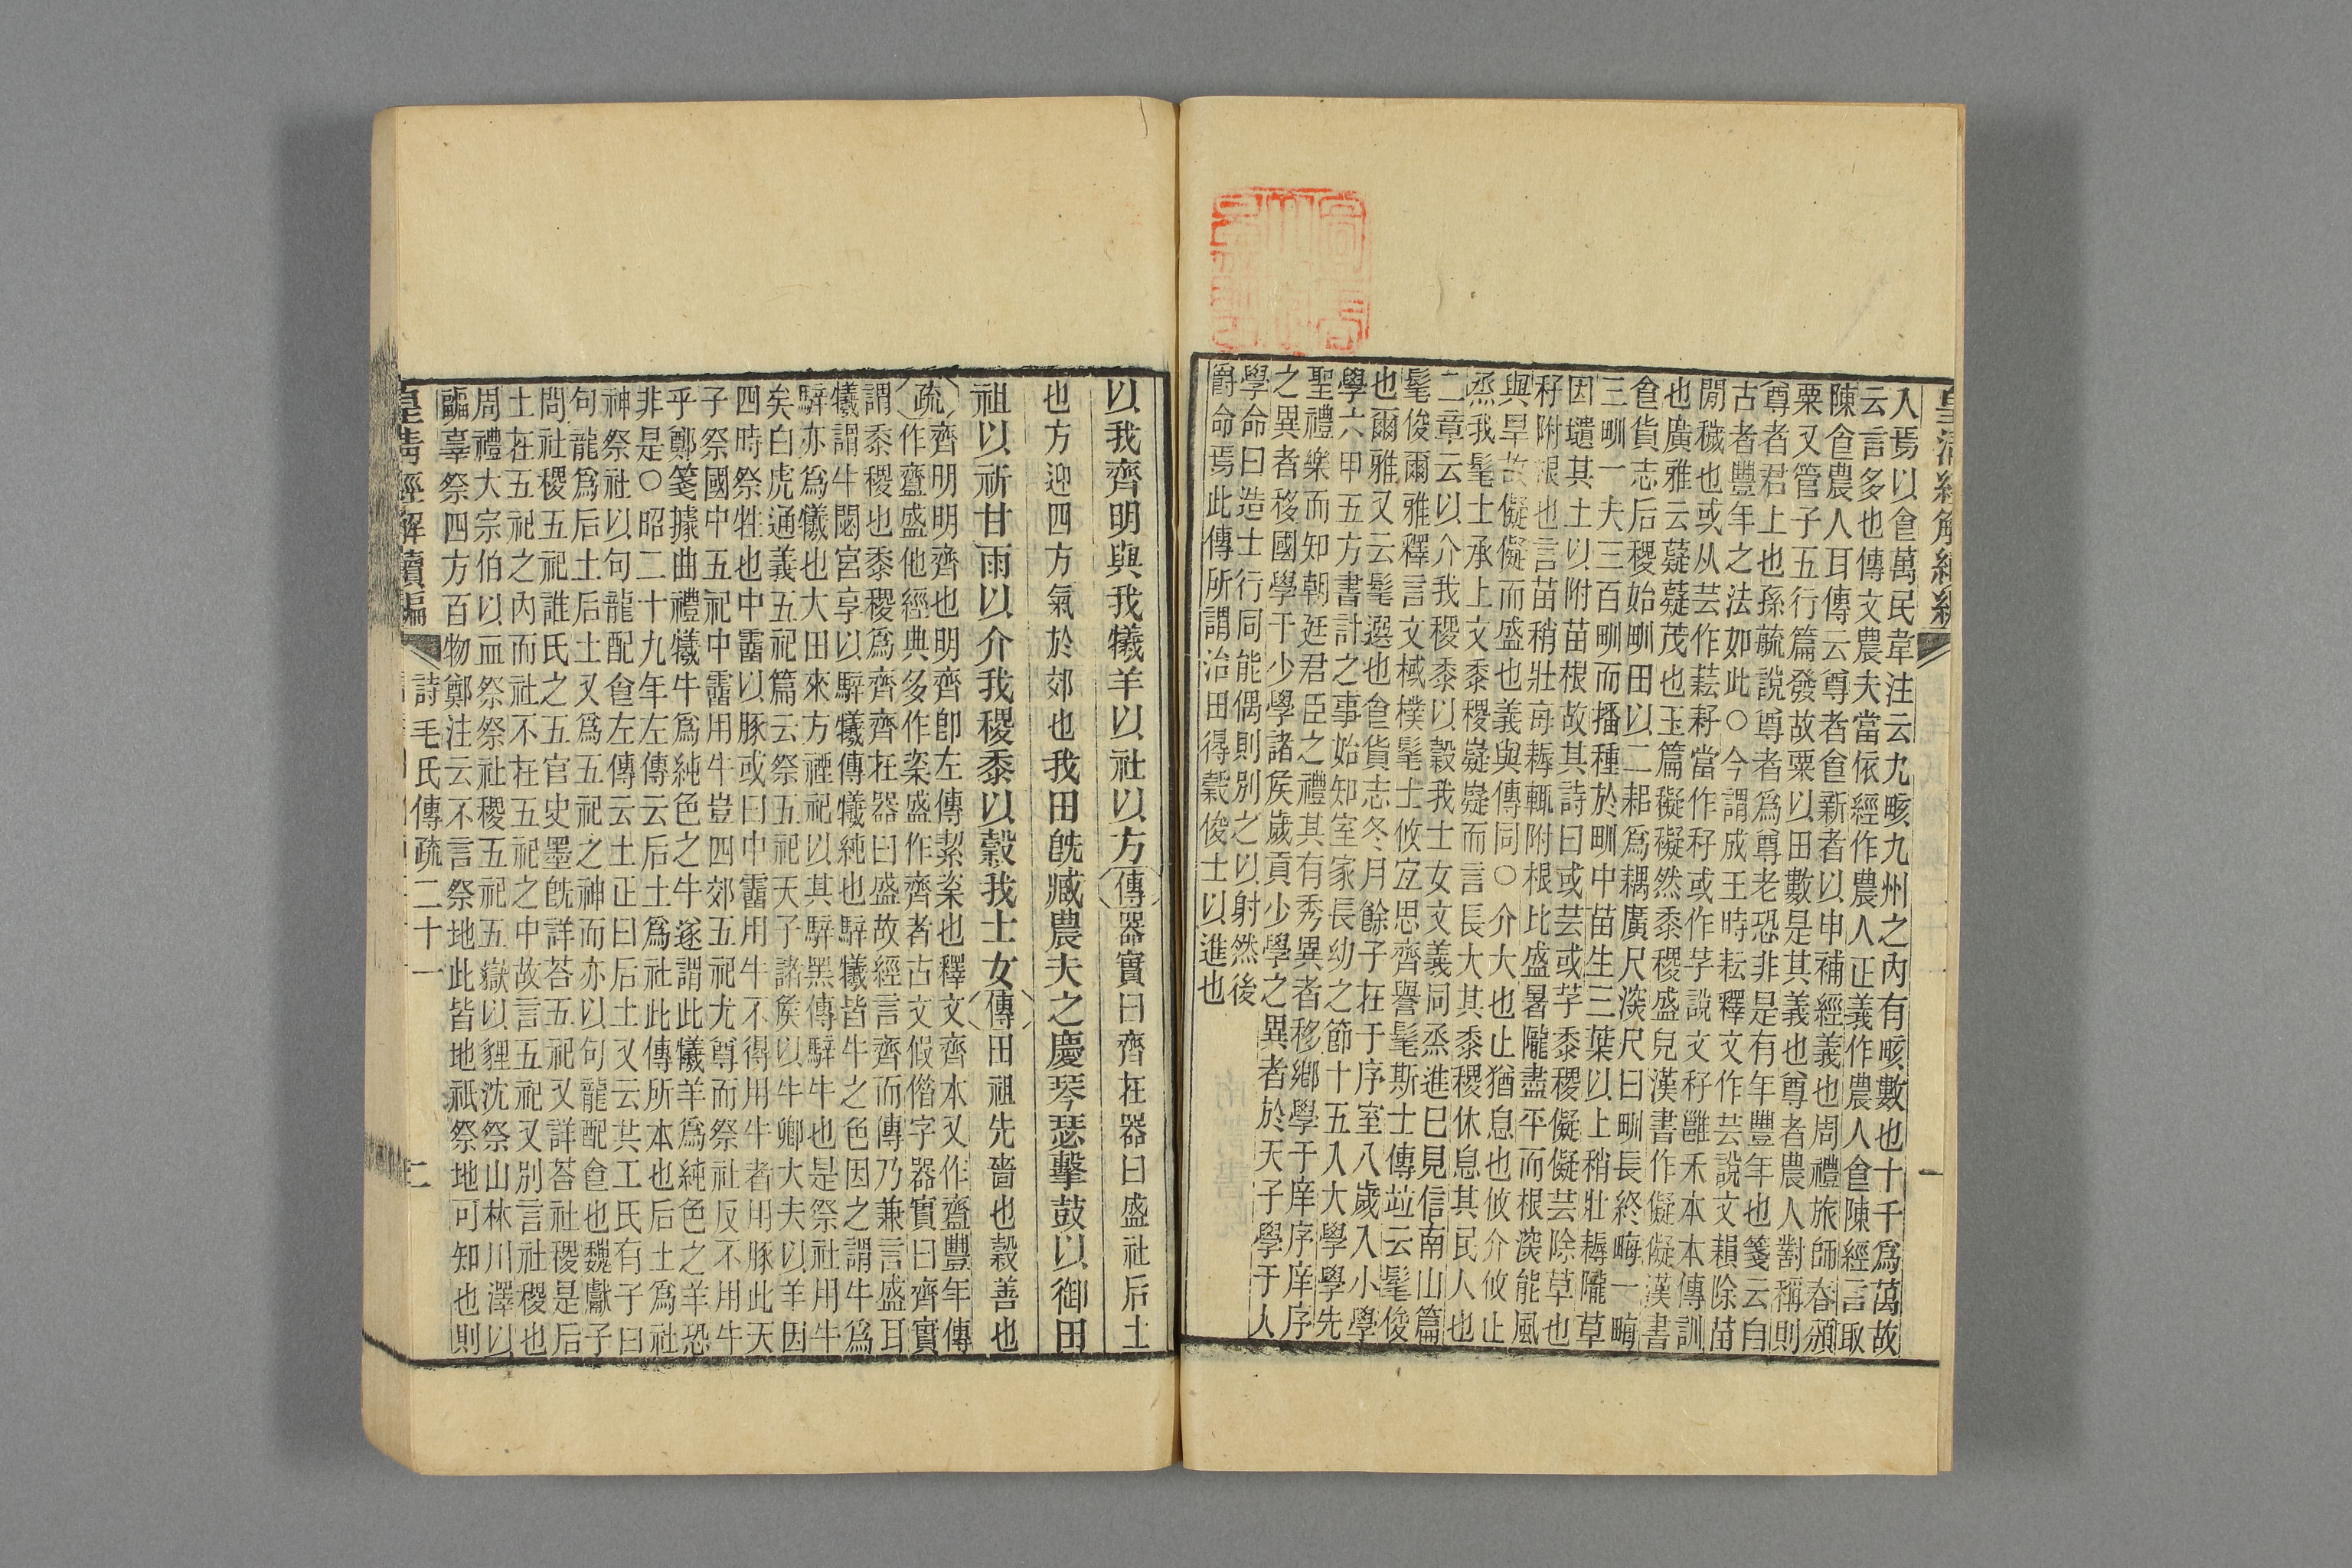 入焉以㑹萬民韋注云九畡九州之內有畡數也十千爲萬故
云言多也傳文農夫當依經作農人正義作農人㑹陳經言取
陳㑹農人耳傳云尊者㑹新者以申補經義也周禮旅師春頒
粟又管子五行篇發故粟以田數是其義也尊者農人對稱則
尊者君上也孫毓說尊者爲尊老恐非是有年豐年也箋云自
古者豐年之法如此○今謂成王時耘釋文作芸說文䅹除苗
閒穢也或从芸作耘耔當作秄或作芓說文秄雝禾本本傳訓
也廣雅云薿薿茂也玉篇礙礙然黍稷盛皃漢書作儗儗漢書
㑹貨志后稷始甽田以二耜爲耦廣尺深尺曰甽長終畮一畮
三甽一夫三百甽而播種於甽中苗生三葉以上稍壯耨隴草
因壝其土以附苗根故其詩曰或芸或芓黍稷儗儗芸除草也
秄附根也言苗稍壯每耨輒附根比盛暑隴盡平而根深能風
與旱故儗儗而盛也義與傳同○介大也止猶息也攸介攸止
烝我髦士承上文黍稷薿薿而言長大其黍稷休息其民人也
二章云以介我稷黍以穀我士女文義同烝進巳見信南山篇
髦俊爾雅釋言文棫樸髦士攸宜思齊譽髦斯士傳竝云髦俊
也爾雅又云髦選也㑹貨志冬月餘子在于序室八歲入小學
學六甲五方書計之事始知室家長幼之節十五入大學學先
聖禮樂而知朝廷君臣之禮其有秀異者移鄉學于庠序庠序
之異者移國學于少學諸矦歲貢少學之異者於天子學于人
學命曰造士行同能偶則別之以射然後
爵命焉此傳所謂治田得穀俊士以進也
以我齊明與我犧羊以社以方傳器實曰齊在器曰盛社后土
也方迎四方氣於郊也我田旣臧農夫之慶琴瑟擊鼓以御田
祖以祈甘雨以介我稷黍以穀我士女傳田祖先嗇也穀善也
疏齊明明齊也明齊卽左傳絜粢也釋文齊本又作齍豐年傳
作齍盛他經典多作粢盛作齊者古文假借字器實曰齊實
謂黍稷也黍稷爲齊齊在器曰盛故經言齊而傳乃兼言盛耳
犧謂牛閟宮享以騂犧傳犧純也騂犧皆牛之色因之謂牛爲
騂亦爲犧也大田來方禋祀以其騂黑傳騂牛也是祭社用牛
矣白虎通義五祀篇云祭五祀天子諸矦以牛卿大夫以羊因
四時祭牲也中霤以豚或曰中霤用牛不得用牛者用豚此天
子祭國中五祀中霤用牛豈四郊五祀尤尊而祭社反不用牛
乎鄭箋據曲禮犧牛爲純色之牛遂謂此犧羊爲純色之羊恐
非是○昭二十九年左傳云后土爲社此傳所本也后土爲社
神祭社以句龍配㑹左傳云土正曰后土又云共工氏有子曰
句龍爲后土后土又爲五祀之神而亦以句龍配㑹也魏獻子
問社稷五祀誰氏之五官史墨旣詳荅五祀又詳荅社稷是后
土在五祀之內而社不在五祀之中故言五祀又別言社稷也
周禮大宗伯以血祭祭社稷五祀五嶽以貍沈祭山林川澤以
疈辜祭四方百物鄭注云不言祭地此皆地祇祭地可知也則
皇淸經解續編
詩毛氏傳疏二十一
二